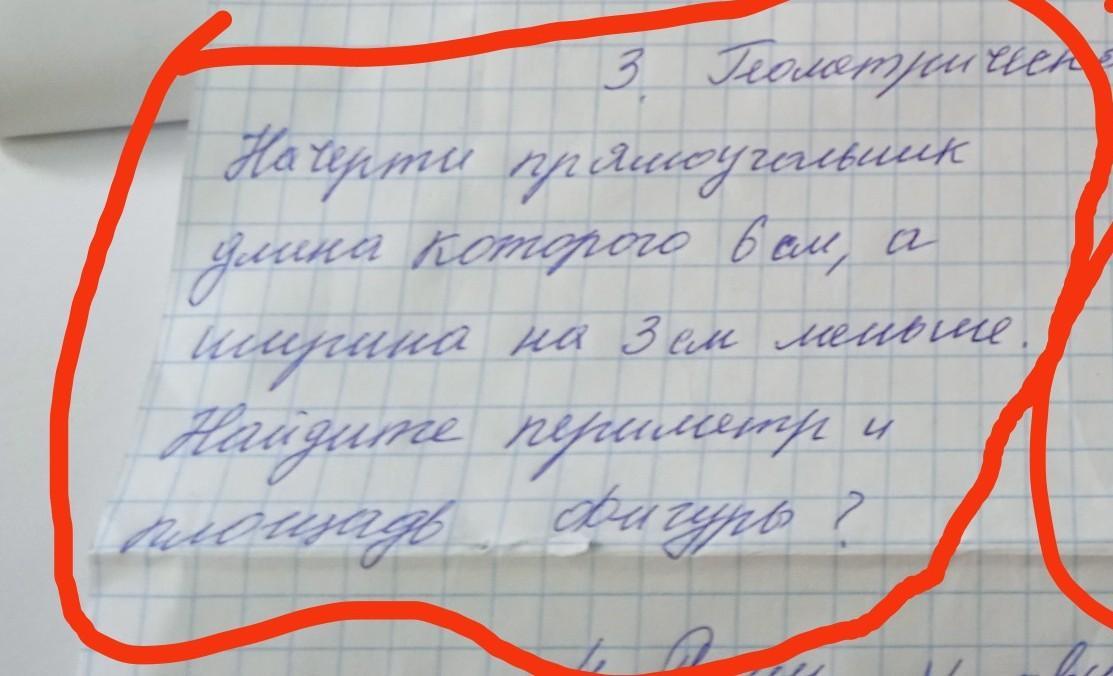 3. Геометричен
Начерти прямоугольник
длина которого 6 см, а
ширина на 3 см меньше.
Найдите периметр и
площадь фигуры?